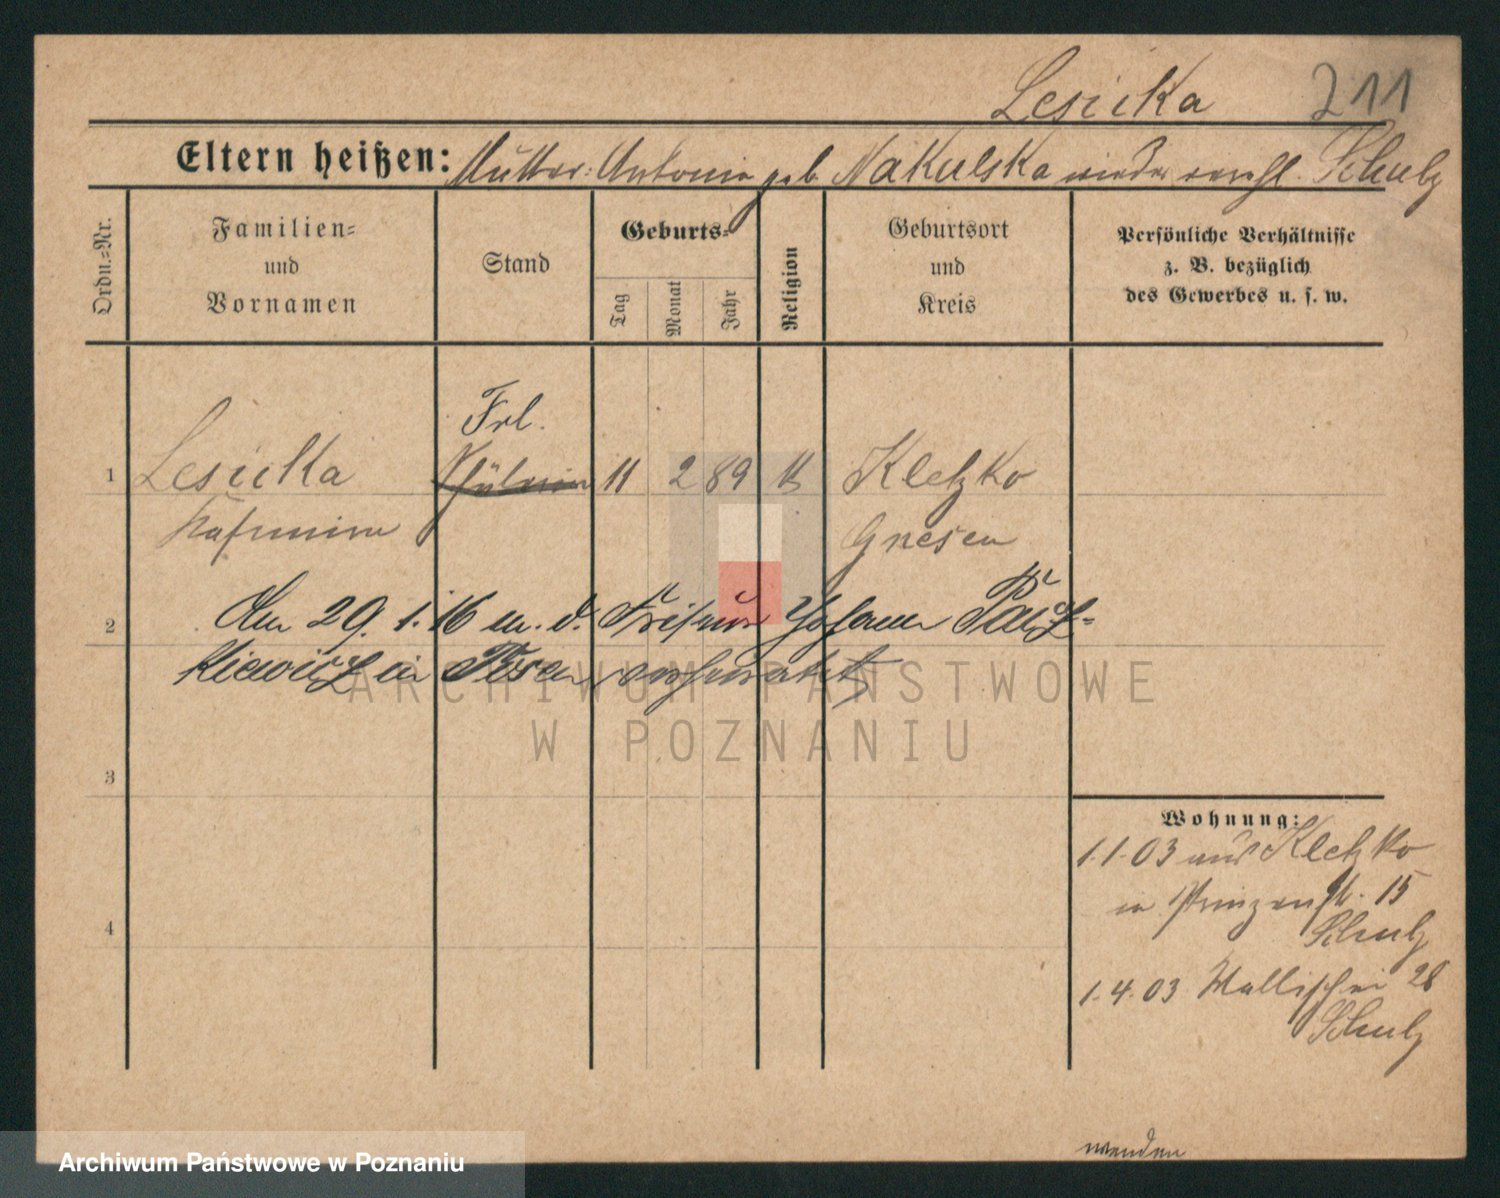 Lesicka 211
Eltern heißen: Mutter: Antonie geb. Nakulska wieder verehl. Schulz
Ordn.=Nr.
Familien=
und
Vornamen
Stand
Geburts=
Tag
Monat
Jahr
Religion
Geburtsort
und
Kreis
Persönliche Verhältnisse
z. B. bezüglich
des Gewerbes u. s. w.
Frl.
1 Lesicka Schülerin 11 2 89 k Kletzko
Kasimira Gnesen
2 Am 29. 1. 16 m. d. Friseur Johann Patz=
kiewicz in Posen verheiratet
3
4
Wohnung:
1.1.03 aus Kletzko
in Prinzenstr. 15
Schulz
1.4.03 Wallischei 28
Schulz
wenden
ARCHIWUM PAŃSTWOWE
W POZNANIU
Archiwum Państwowe w Poznaniu